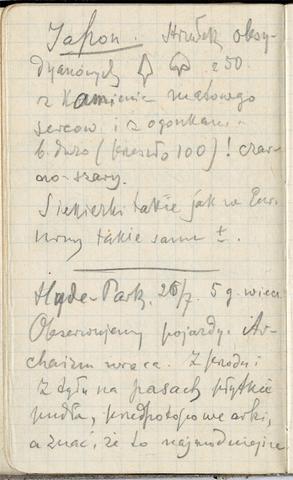 Japon. Strzałek obsy-
dyanowych 250.
z kamienia matowego
sercow. i z ogonkami
b. dużo (przeszło 100)! czar-
no-szary.
Siekierki takie jak w Eur.
takie same ±.
Hyde-Park. 26/7. 5 g. wiecz.
Obserwujemy pojazdy. Ar-
chaizm wraca. Z przodu i
z tyłu na pasach płytkie
pudła, przedpotopowe arki,
a znać, że to najmodniejsze